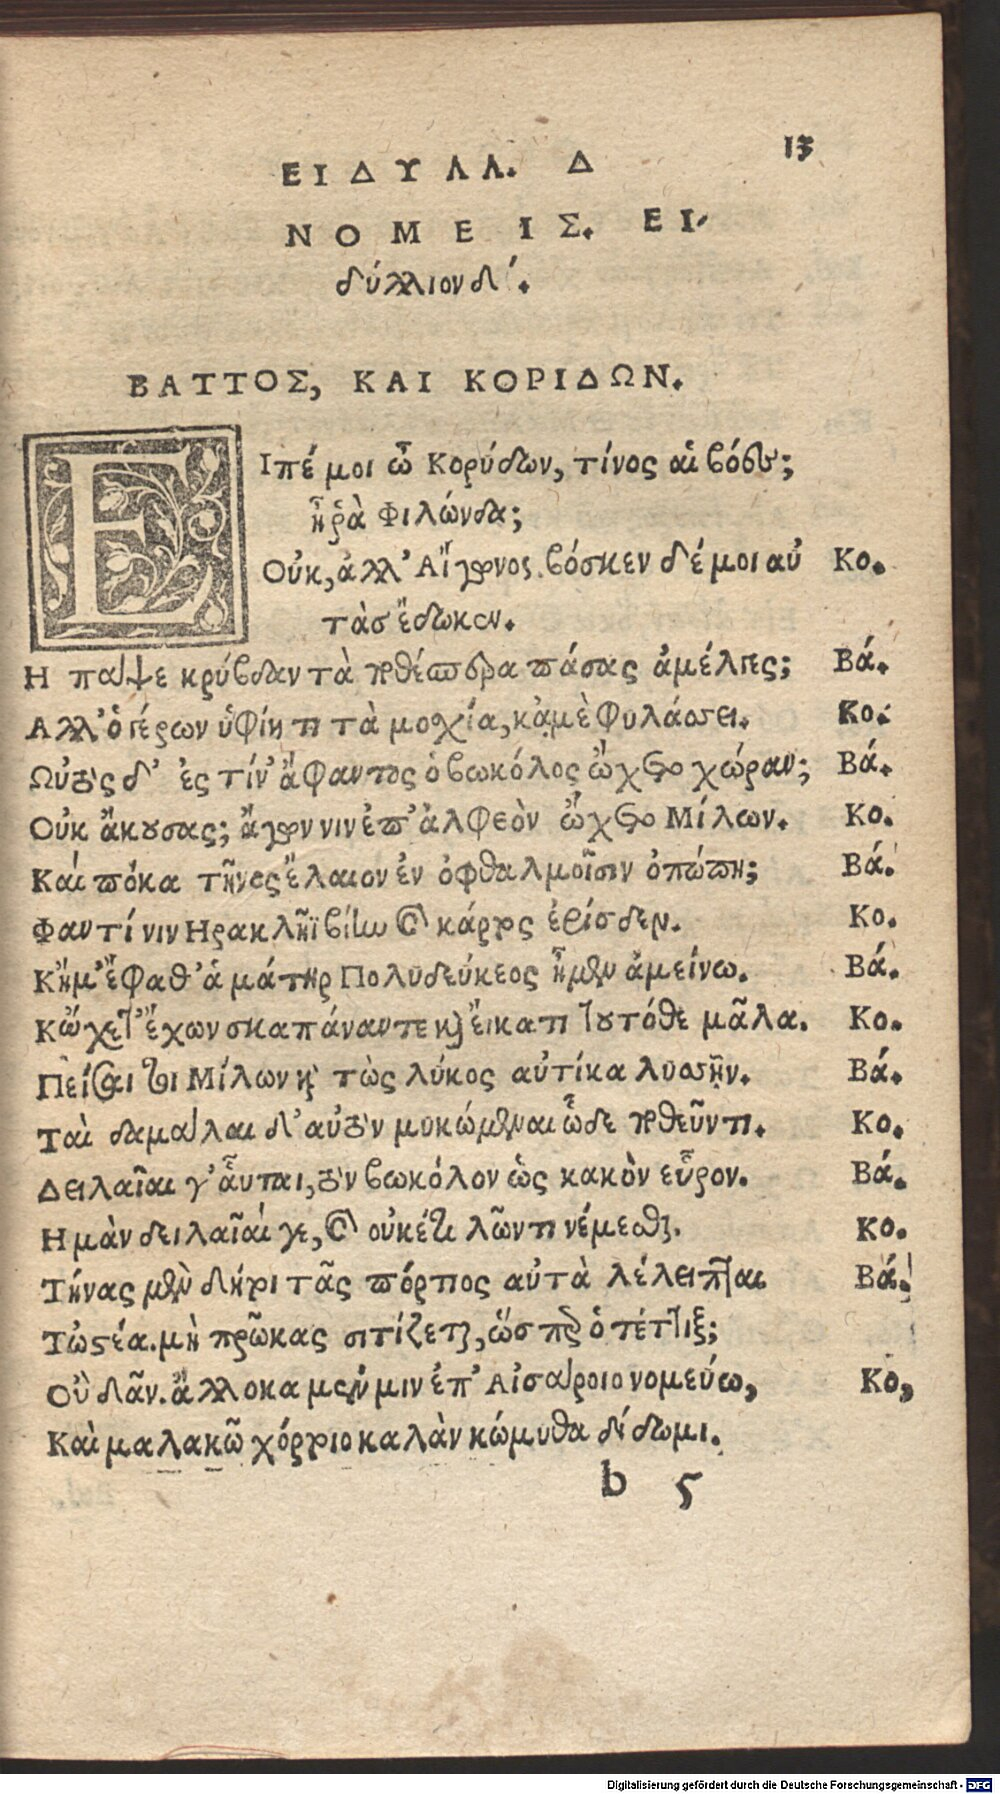 13
ΕΙΔΥΛΛ. Δ
ΝΟΜΕΙΣ. ΕΙ-
δύλλιον δ΄.
ΒΑΤΤΟΣ, ΚΑΙ ΚΟΡΙΔΩΝ.
ΕΙπέ μοι ὦ Κορύδων, τίνος αἱ βόες;
ἦ ῥὰ Φιλώνδα;
Οὐκ, ἀλλ' Αἴγωνος. βόσκεν δέ μοι αὐ Κο.
τὰσ ἔδωκεν.
Η πᾳ ψε κρύβδαν τὰ ποθέσπερα πάσας ἀμέλγες; Βά.
Αλλ' ὁ γέρων ὑφίητι τὰ μοχία, κᾀμὲ φυλάσσει. Κο.
Ωὐτὸς δ' ἐς τίν' ἄφαντος ὁ βωκόλος ᾤχετο χώραν; Βά.
Οὐκ ἄκουσας; ἄγων νιν ἐπ' ἀλφεὸν ᾤχετο Μίλων. Κο.
Καὶ πόκα τῆνος ἔλαιον ἐν ὀφθαλμοῖσιν ὀπώπη; Βά.
Φαντί νιν Ηρακλῆϊ βίην καὶ κάρτος ἐρίσδεν. Κο.
Κἤμ' ἔφαθ' ἁ μάτηρ Πολυδεύκεος ἦμεν ἀμείνω. Βά.
Κᾤχετ' ἔχων σκαπάναν τε καὶ εἴκατι τουτόθε μᾶλα. Κο.
Πείσαι τοι Μίλων καὶ τὼς λύκος αὐτίκα λυσσῆν. Βά.
Ταὶ δαμάλαι δ' αὐτὸν μυκώμεναι ὧδε ποθεῦντι. Κο.
Δειλαῖαι γ' αὗται, τὸν βωκόλον ὡς κακὸν εὗρον. Βά.
Η μὰν δειλαῖαί γε, καὶ οὐκέτι λῶντι νέμεσθαι. Κο.
Τήνας μὲν δήρι τᾶς πόρτιος αὐτὰ λέλειπται Βά.
Τὠστέα. μὴ πρῶκας σιτίζεται, ὥσπερ ὁ τέττιξ;
Οὐ δᾶν. ἄλλοκα μεν μιν ἐπ' Αἰσάροιο νομεύω, Κο,
Καὶ μαλακῶ χόρτοιο καλὰν κώμυθα δίδωμι.
b 5
Digitalisierung gefördert durch die Deutsche Forschungsgemeinschaft - DFG